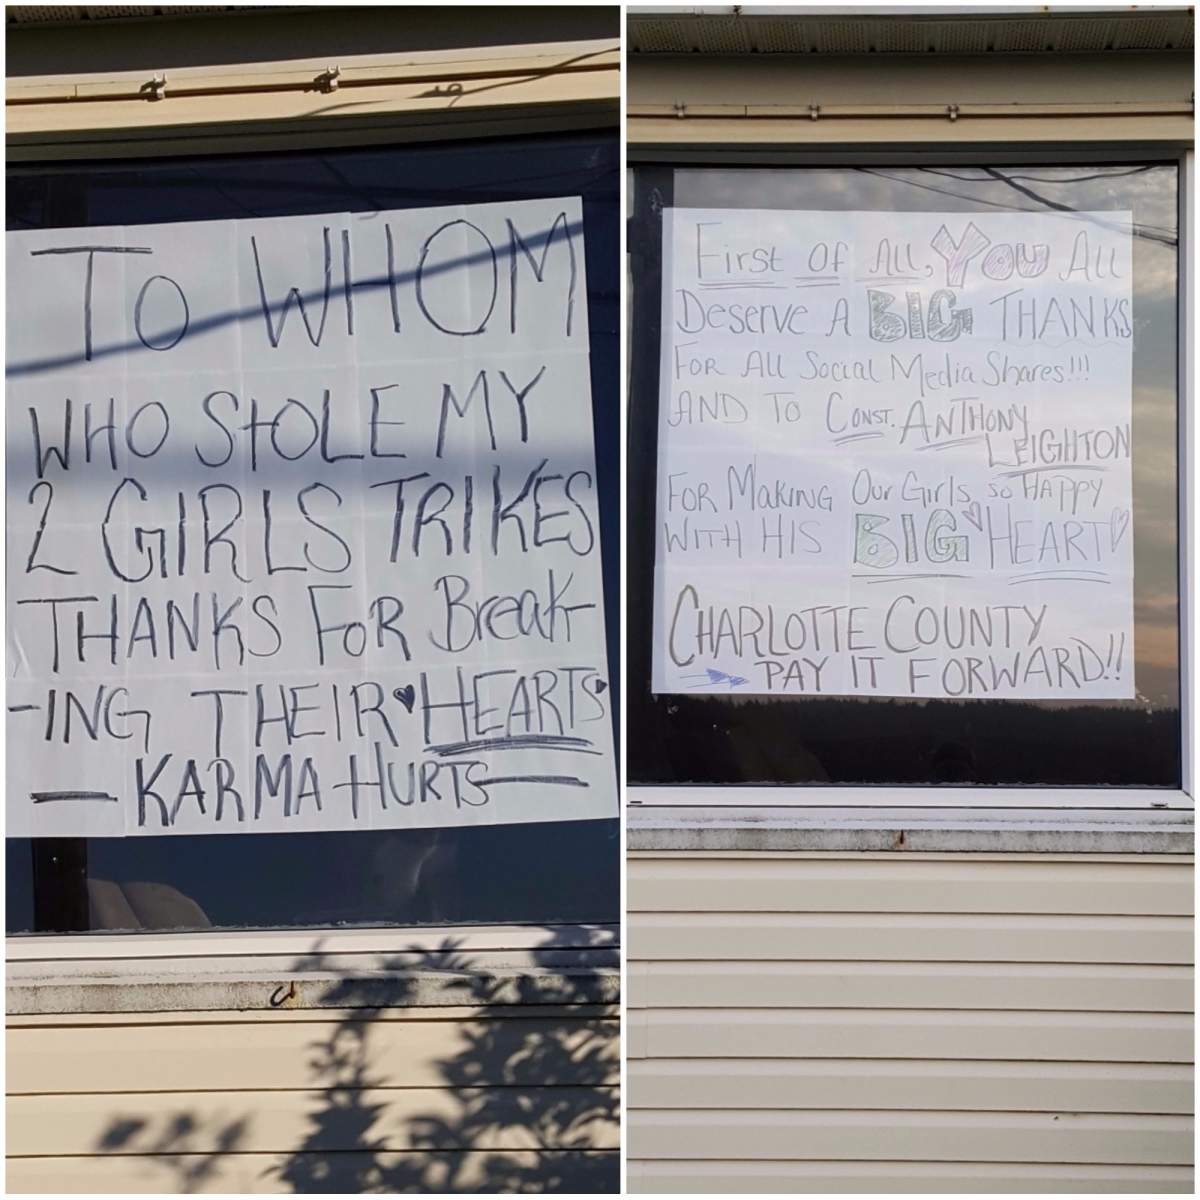 To WHOM
WHO StOLE MY
2 GIRLS TRIKES
THANKS FoR Break-
-ING THEIR HEARTS
— KARMA HURTS —
First Of All, You All
Deserve A BIG THANKS
For All Social Media Shares!!!
AND To Const. Anthony
Leighton
For Making Our Girls so Happy
With His BIG Heart
Charlotte County
Pay It Forward!!